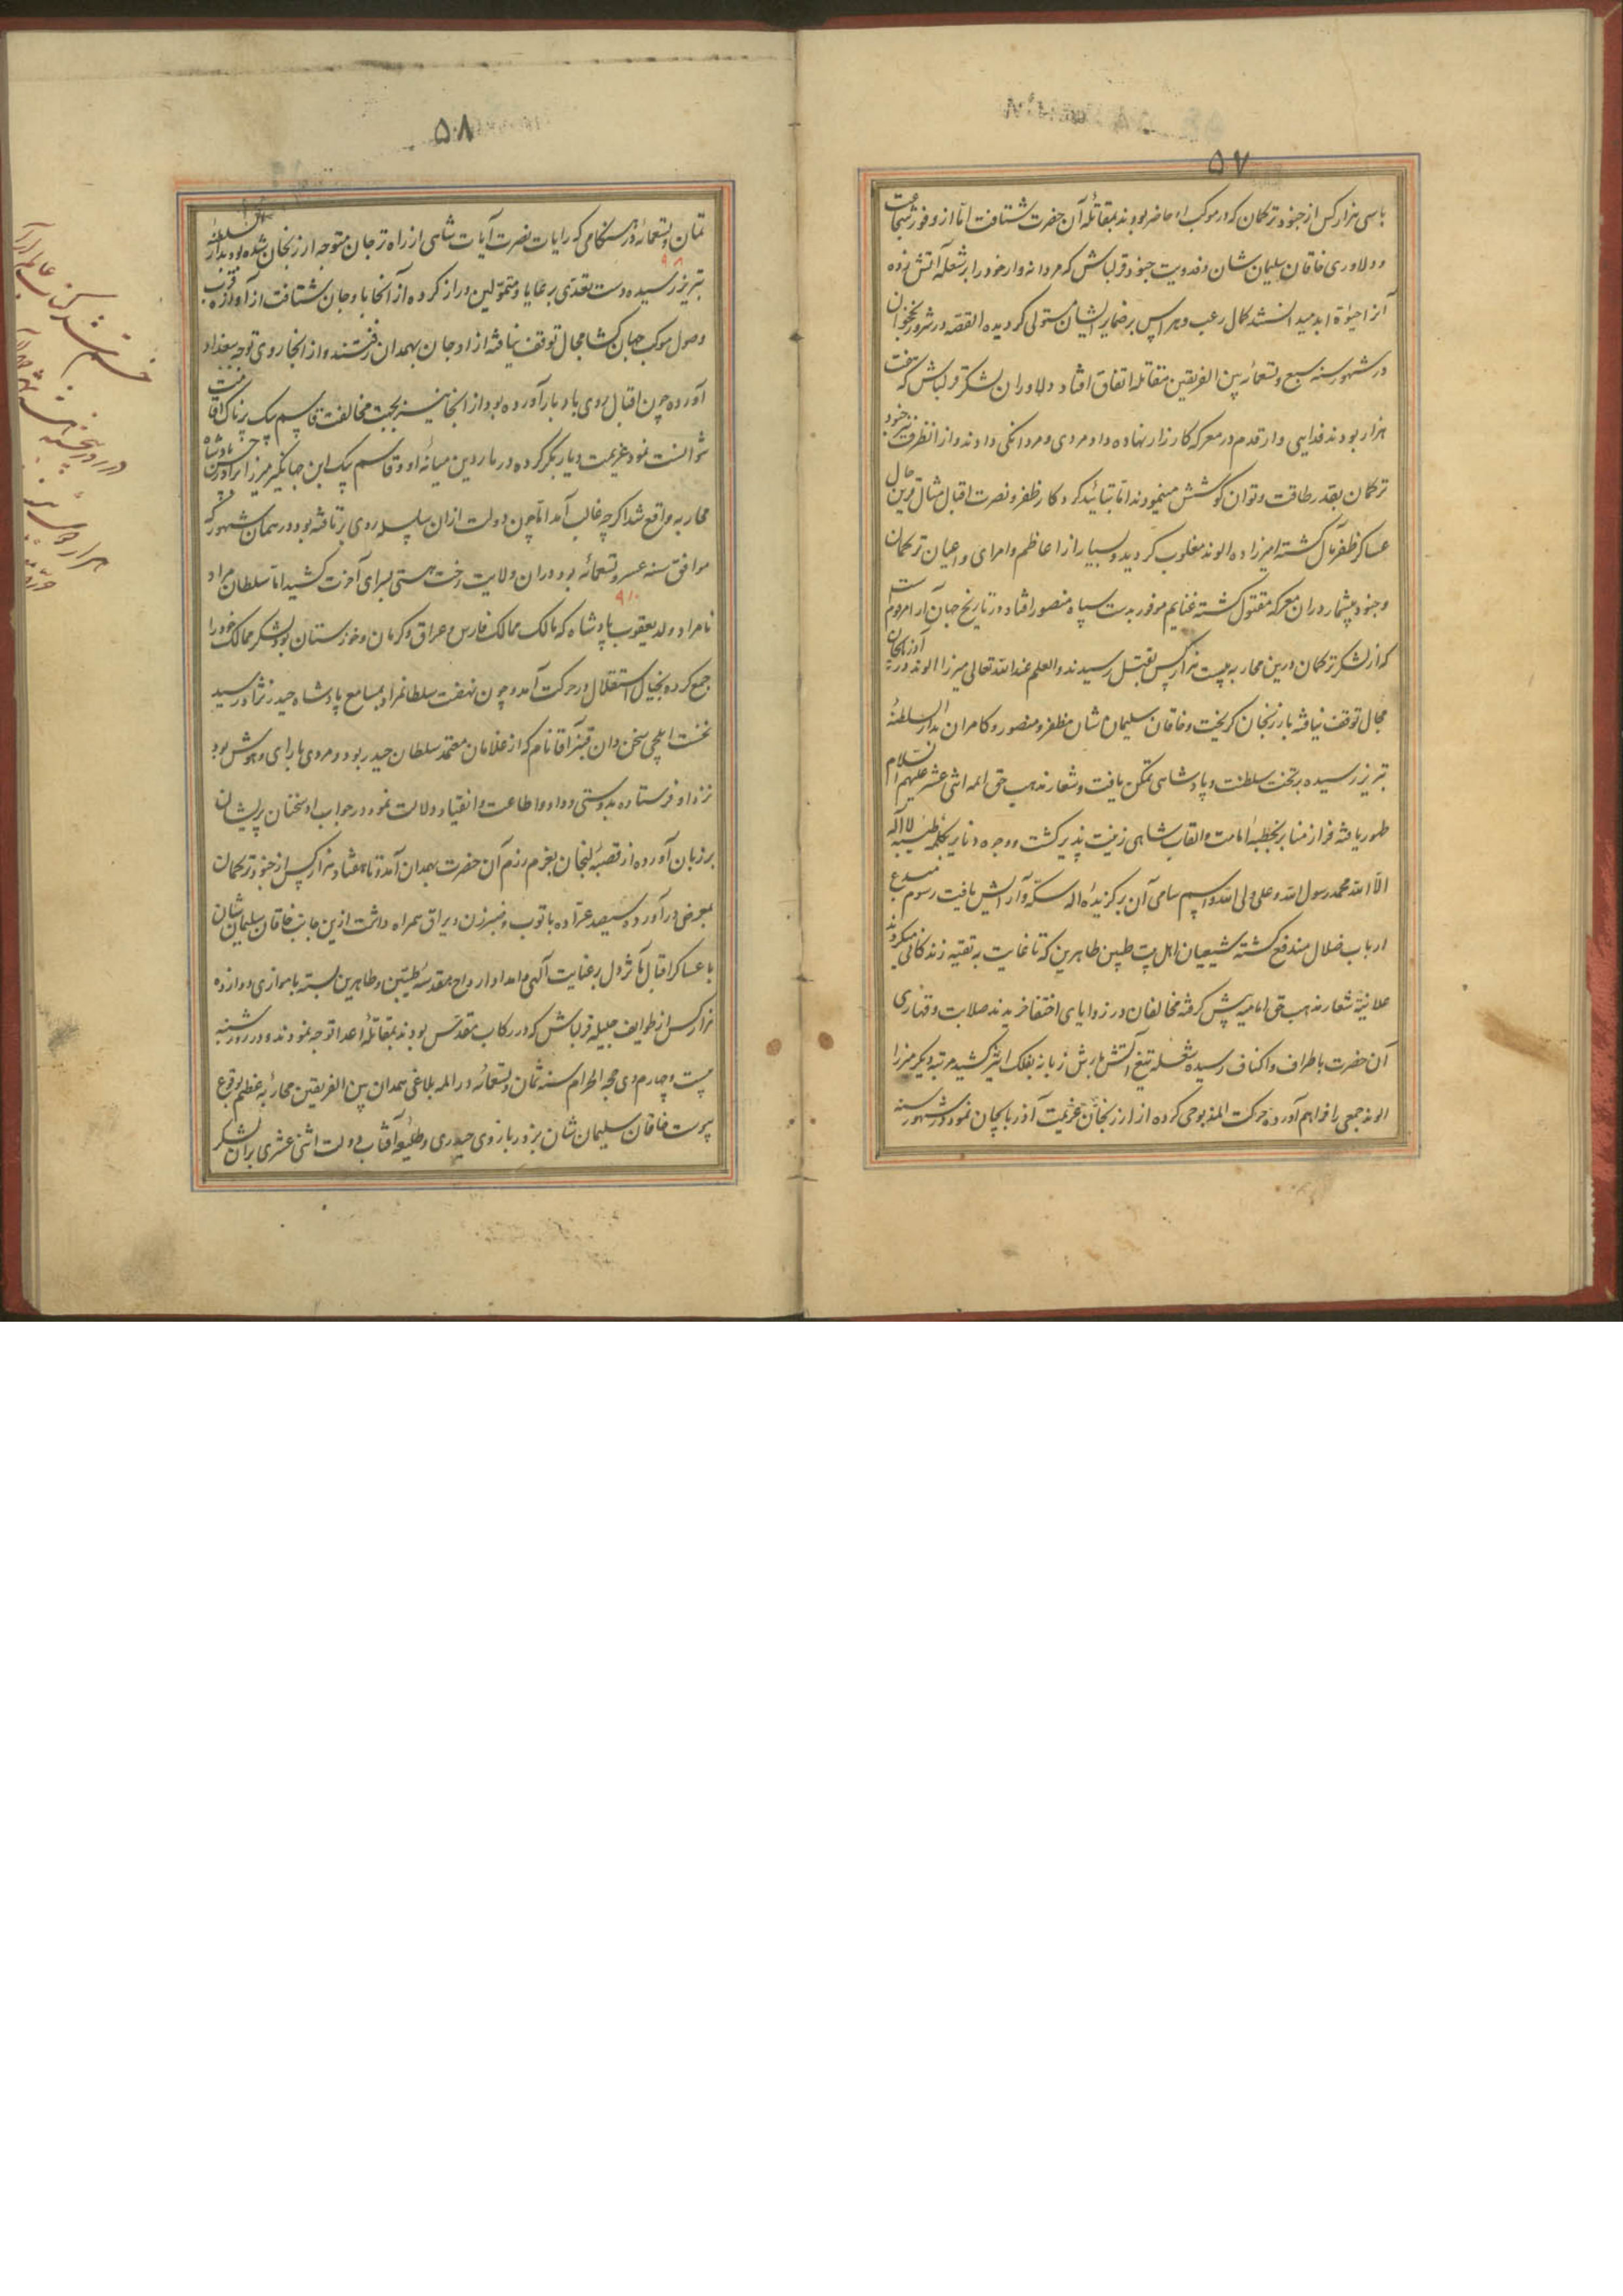 ۵۷
با سی هزار کس از جنود ترکمان که در موکب او حاضر بودند بمقاتلهٔ آن حضرت شتافت اما از وفور شجاعت
و دلاوری خاقان سلیمان شان و فدویت جنود قزلباش که مردانه وار خود را بر شعلهٔ آتش زده
آنرا حیوة ابد میدانستند کمال رعب و هراس بر ضمایر ایشان مستولی گردیده القصه در شرور نخجوان
در شهور سنه سبع و تسعمائه بین الفریقین مقاتله اتفاق افتاد دلاوران لشکر قزلباش که هفت
هزار بودند فدایی وار قدم در معرکه کارزار نهاده داد مردی و مردانگی دادند و از انطرف نیز جنود
ترکمان بقدر طاقت و توان کوشش مینمودند اما بتائید کردکار ظفر و نصرت اقبال مثال قرین حال
عساکر ظفر مآل گشته امیرزاده الوند مغلوب گردید و بسیار از اعاظم و امرای و اعیان ترکمان
و جنود بیشمار در ان معرکه مقتول گشته غنایم موفور بدست سپاه منصور افتاد در تاریخ جهان آرا مرقوم است
که از لشکر ترکمان درین محاربه بیست هزار کس بقتل رسیدند والعلم عند الله تعالی میرزا الوند در آذربایجان
مجال توقف نیافته بارزنجان گریخت و خاقان سلیمان شان مظفر و منصور و کامران بدار السلطنهٔ
تبریز رسیده بر تخت سلطنت و پادشاهی تمکن یافت و شعار مذهب حق ائمه اثنی عشر علیهم السلام
ظهور یافته فراز منابر بخطبهٔ امامت و القاب شاهی زینت پذیر گشت و وجوه دنانیر بکلمه طیبهٔ لا اله
الا الله محمد رسول الله و علی ولی الله و اسم سامی آن برگزیدهٔ اله سکه و آرایش یافت رسوم مبدع
ارباب ضلال مندفع گشته شیعیان اهل بیت طیبین طاهرین که تا غایت به تقیه زندگانی میکردند
علانیة شعار مذهب حق امامیه پیش گرفته مخالفان در زوایای اختفا خزیدند صلابت و قهاری
آن حضرت باطراف و اکناف رسیده شعله تیغ آتش بارش زبانه بفلک اثیر کشید مرتبه دیگر میرزا
الوند جمعی را فراهم آورده حرکت المذبوحی کرده از ارزنجان عزیمت آذربایجان نمود در شهور سنه
۵۸
ثمان و تسعمائه در هنگامی که رایات نصرت آیات شاهی از راه ترجان متوجه ارزنجان شده بود بدار السلطنهٔ
۹۰۸
تبریز رسیده دست تعدی بر عایا و متمولین دراز کرده از آنجا باوجان شتافت از آوازه قرب
وصول موکب جهان کشا مجال توقف نیافته از اوجان بهمدان رفتند و از انجا روی توجه ببغداد
آورده چون اقبال روی بادبار آورده بود از انجا نیز بجهت مخالفت قاسم بیک پرناک اقامت
نتوانست نمود عزیمت دیار بکر کرده در ماردین میانهٔ او و قاسم بیک ابن جهانگیر میرزا برادر حسن پادشاه
محاربه واقع شد اگرچه غالب آمد اما چون دولت از ان سلسله روی برتافته بود در همان شهور که
موافق سنه عشر و تسعمائه بود در ان ولایت رخت هستی بسرای آخرت کشید اما سلطان مراد
۹۱۰
نامراد ولد یعقوب پادشاه که مالک ممالک فارس و عراق و کرمان و خوزستان بود لشکر ممالک خود را
جمع کرده بخیال استقلال در حرکت آمد و چون نهضت سلطانمراد بمسامع پادشاه حیدر نژاد رسید
نخست ایلچی سخن دان قنبر آقا نام که از غلامان معتمد سلطان حیدر بود و مردی با رای و هوش بود
نزد او فرستاده بدوستی و وداد و اطاعت و انقیاد دلالت نمود در جواب او سخنان پریشان
بر زبان آورده از قصبهٔ لنجان بعزم رزم آن حضرت بهمدان آمد و تا هفتاد هزار کس از جنود ترکمان
بمعرض در آورده سیصد عراده با توب و ضربزن و یراق همراه داشت ازین جانب خاقان سلیمان شان
با عساکر اقبال مآثر دل بر عنایت الهی و امداد ارواح مقدسهٔ طیبین و طاهرین بسته با موازی دوازده
هزار کس از طوایف جلیله قزلباش که در رکاب مقدس بودند بمقاتلهٔ اعدا توجه نمودند و در روز شنبه
بیست و چهارم ذی حجه الحرام سنه ثمان و تسعمائه در المه بلاغی همدان بین الفریقین محاربهٔ عظیم بوقوع
پیوست خاقان سلیمان شان بزور بازوی حیدری و طلیعه آفتاب دولت اثنی عشری بران لشکر